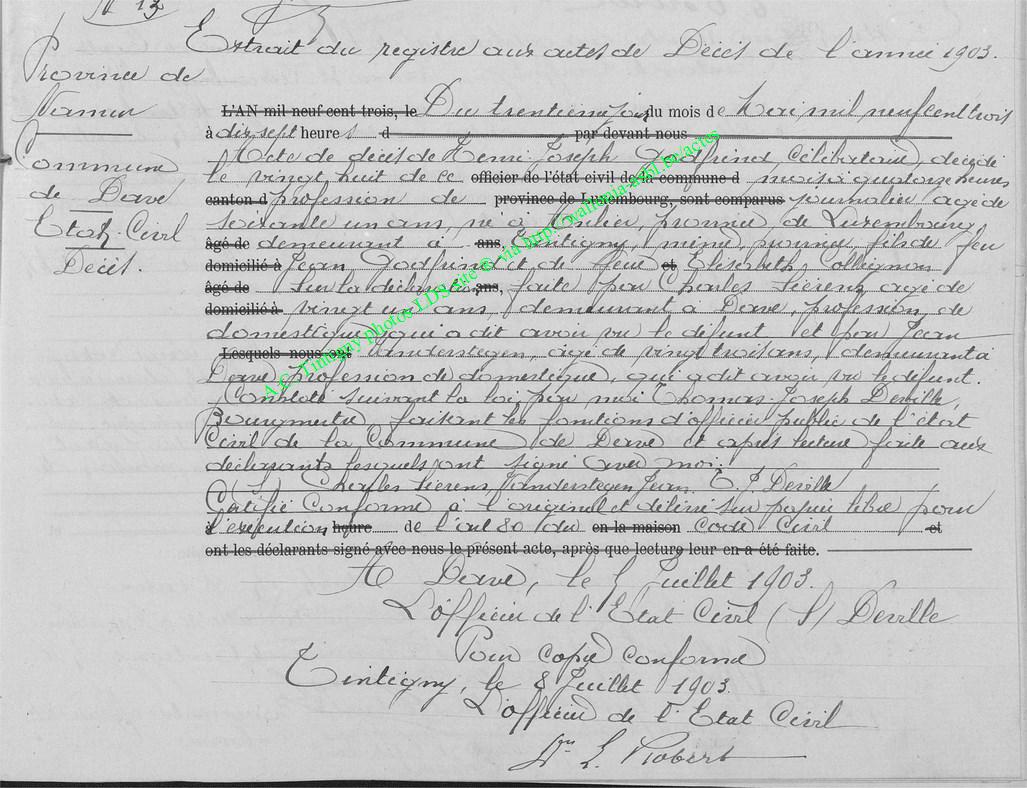 N° 13
Extrait du registre aux actes de Décès de l'année 1903.
Province de
Namur
Commune
de Dave
Etat-Civil
Décès.
L'AN mil neuf cent trois, le Du trentième jour du mois de Mai mil neuf cent trois
à dix sept heures d par devant nous
Acte de décès de Henri Joseph Godfrind, célibataire, décédé
le vingt huit de ce officier de l'état civil de la commune d mois à quatorze heures
canton d profession de province de Luxembourg, sont comparus journalier âgé de
soixante un ans, né à province de Luxembourg,
âgé de demeurant à ans, Tintigny, même province fils de feu
domicilié à Jean Godfrind et de feue et Elisabeth Collignon
âgé de Sur la déclaration ans, faite par Charles Sierens, âgé de
domicilié à vingt un ans, demeurant à Dave, profession de
domestique qui a dit avoir vu le défunt et par Jean
Lesquels nous ont Vanderstegen, âgé de vingt trois ans, demeurant à
Dave, profession de domestique, qui a dit avoir vu le défunt.
Constaté suivant la loi, par moi Thomas-Joseph Deville,
Bourgmestre faisant les fonctions d'officier public de l'état
Civil de la Commune de Dave et après lecture faite aux
déclarants lesquels ont signé avec moi.
(S) Charles Sierens, Vanderstegen Jean. T. J. Deville
Certifié Conforme à l'original et délivré sur papier libre pour
l'exécution heure de l'art 80 du en la maison Code Civil et
ont les déclarants signé avec nous le présent acte, après que lecture leur en a été faite.
A Dave, le 5 Juillet 1903.
L'officier de l'Etat Civil (S) Deville
Pour copie conforme
Tintigny, le 8 Juillet 1903.
L'officier de l'Etat Civil
L. Robert
A.C. Tintigny photos LDS site © via http://wallonia-asbl.be/actes